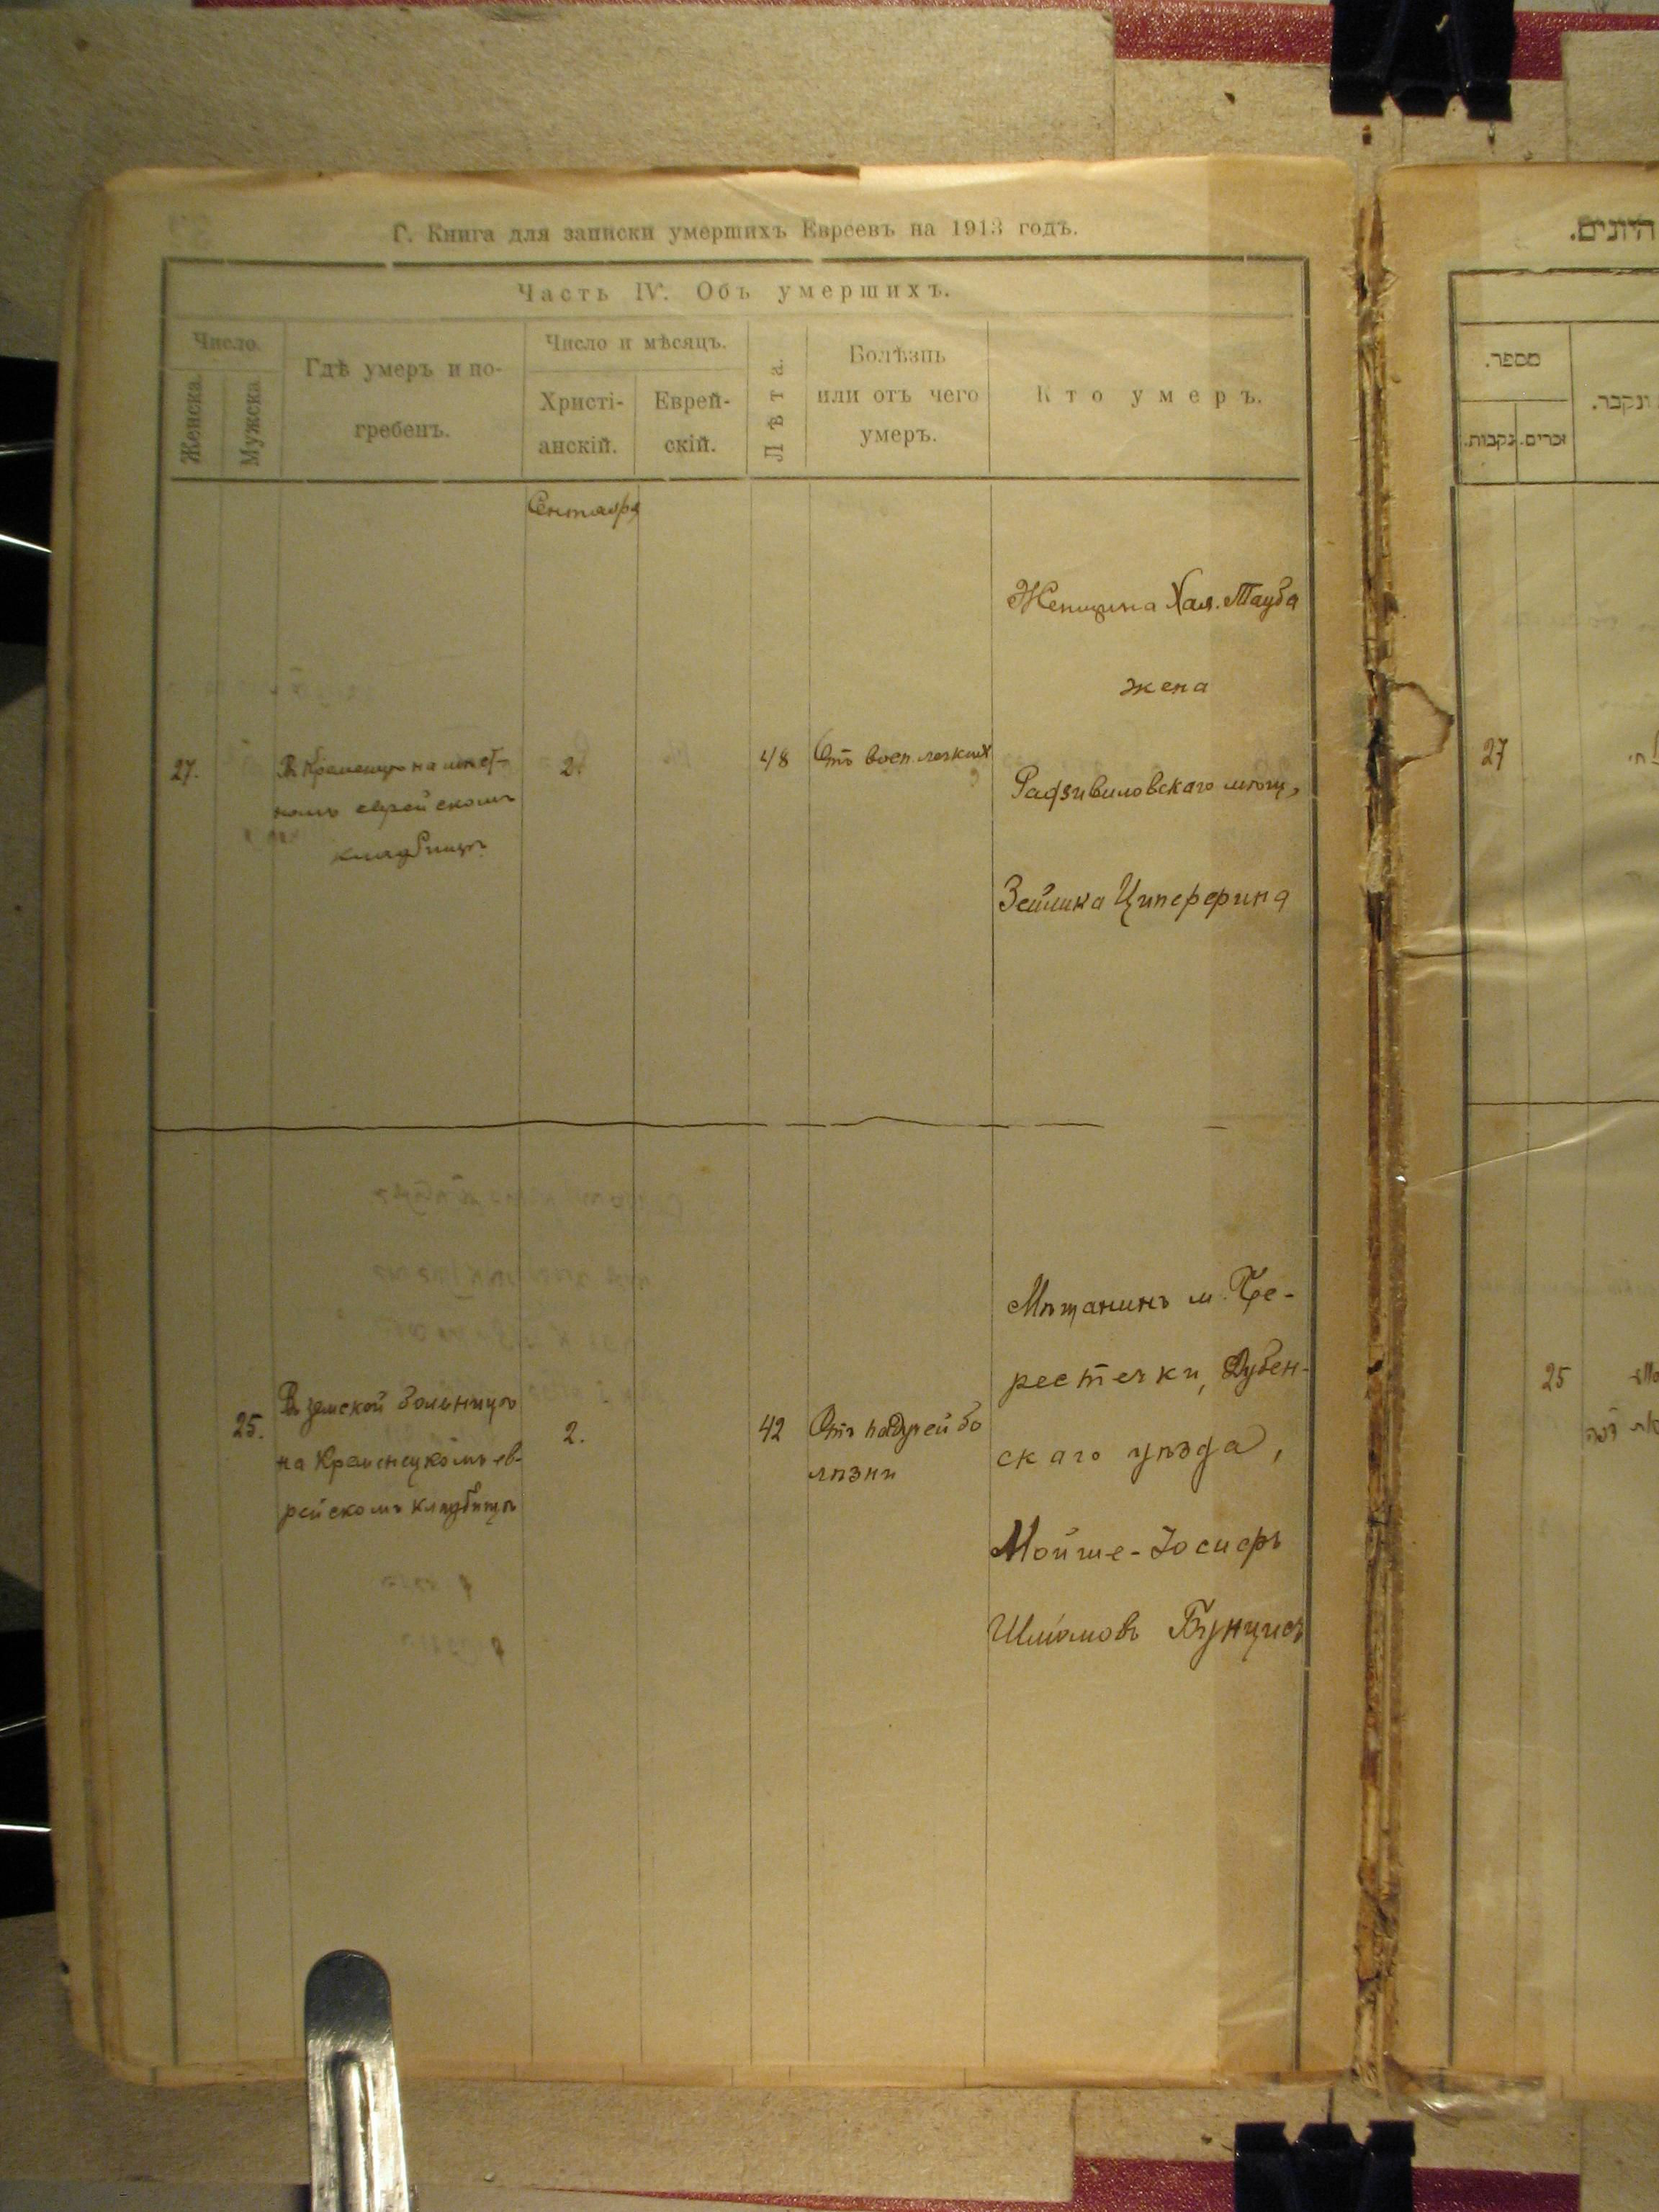 Г. Книга для записки умершихъ Евреевъ на 1913 годъ.
Часть IV. Объ умершихъ.
Число.
Женска.
Мужска.
Гдѣ умеръ и по-
гребенъ.
Число и мѣсяцъ.
Христі-
анскій.
Еврей-
скій.
Лѣта.
Болѣзнь
или отъ чего
умеръ.
Кто умеръ.
Сентября
27.
В Кременцѣ на мѣст-
номъ еврейскомъ
кладбищѣ
2.
48
Отъ восп. легкихъ
Женщина Хая-Тауба
жена
Радзивиловскаго мѣщ.
Зейлика Циперфина
25.
Въ земской больницѣ
на Кременецкомъ ев-
рейскомъ кладбищѣ
2.
42
Отъ падучей бо
лѣзни
Мѣщанинъ м. Бе-
рестечки, Дубен-
скаго уѣзда,
Мойше-Іосифъ
Шлiомовъ
מספר.
נקבות.
זכרים.
ונקבר.
27
25